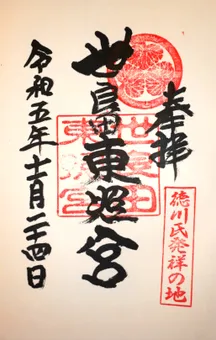 奉拝
徳川氏発祥の地
世良田東照宮
世良田
東照宮
令和五年十二月二十四日